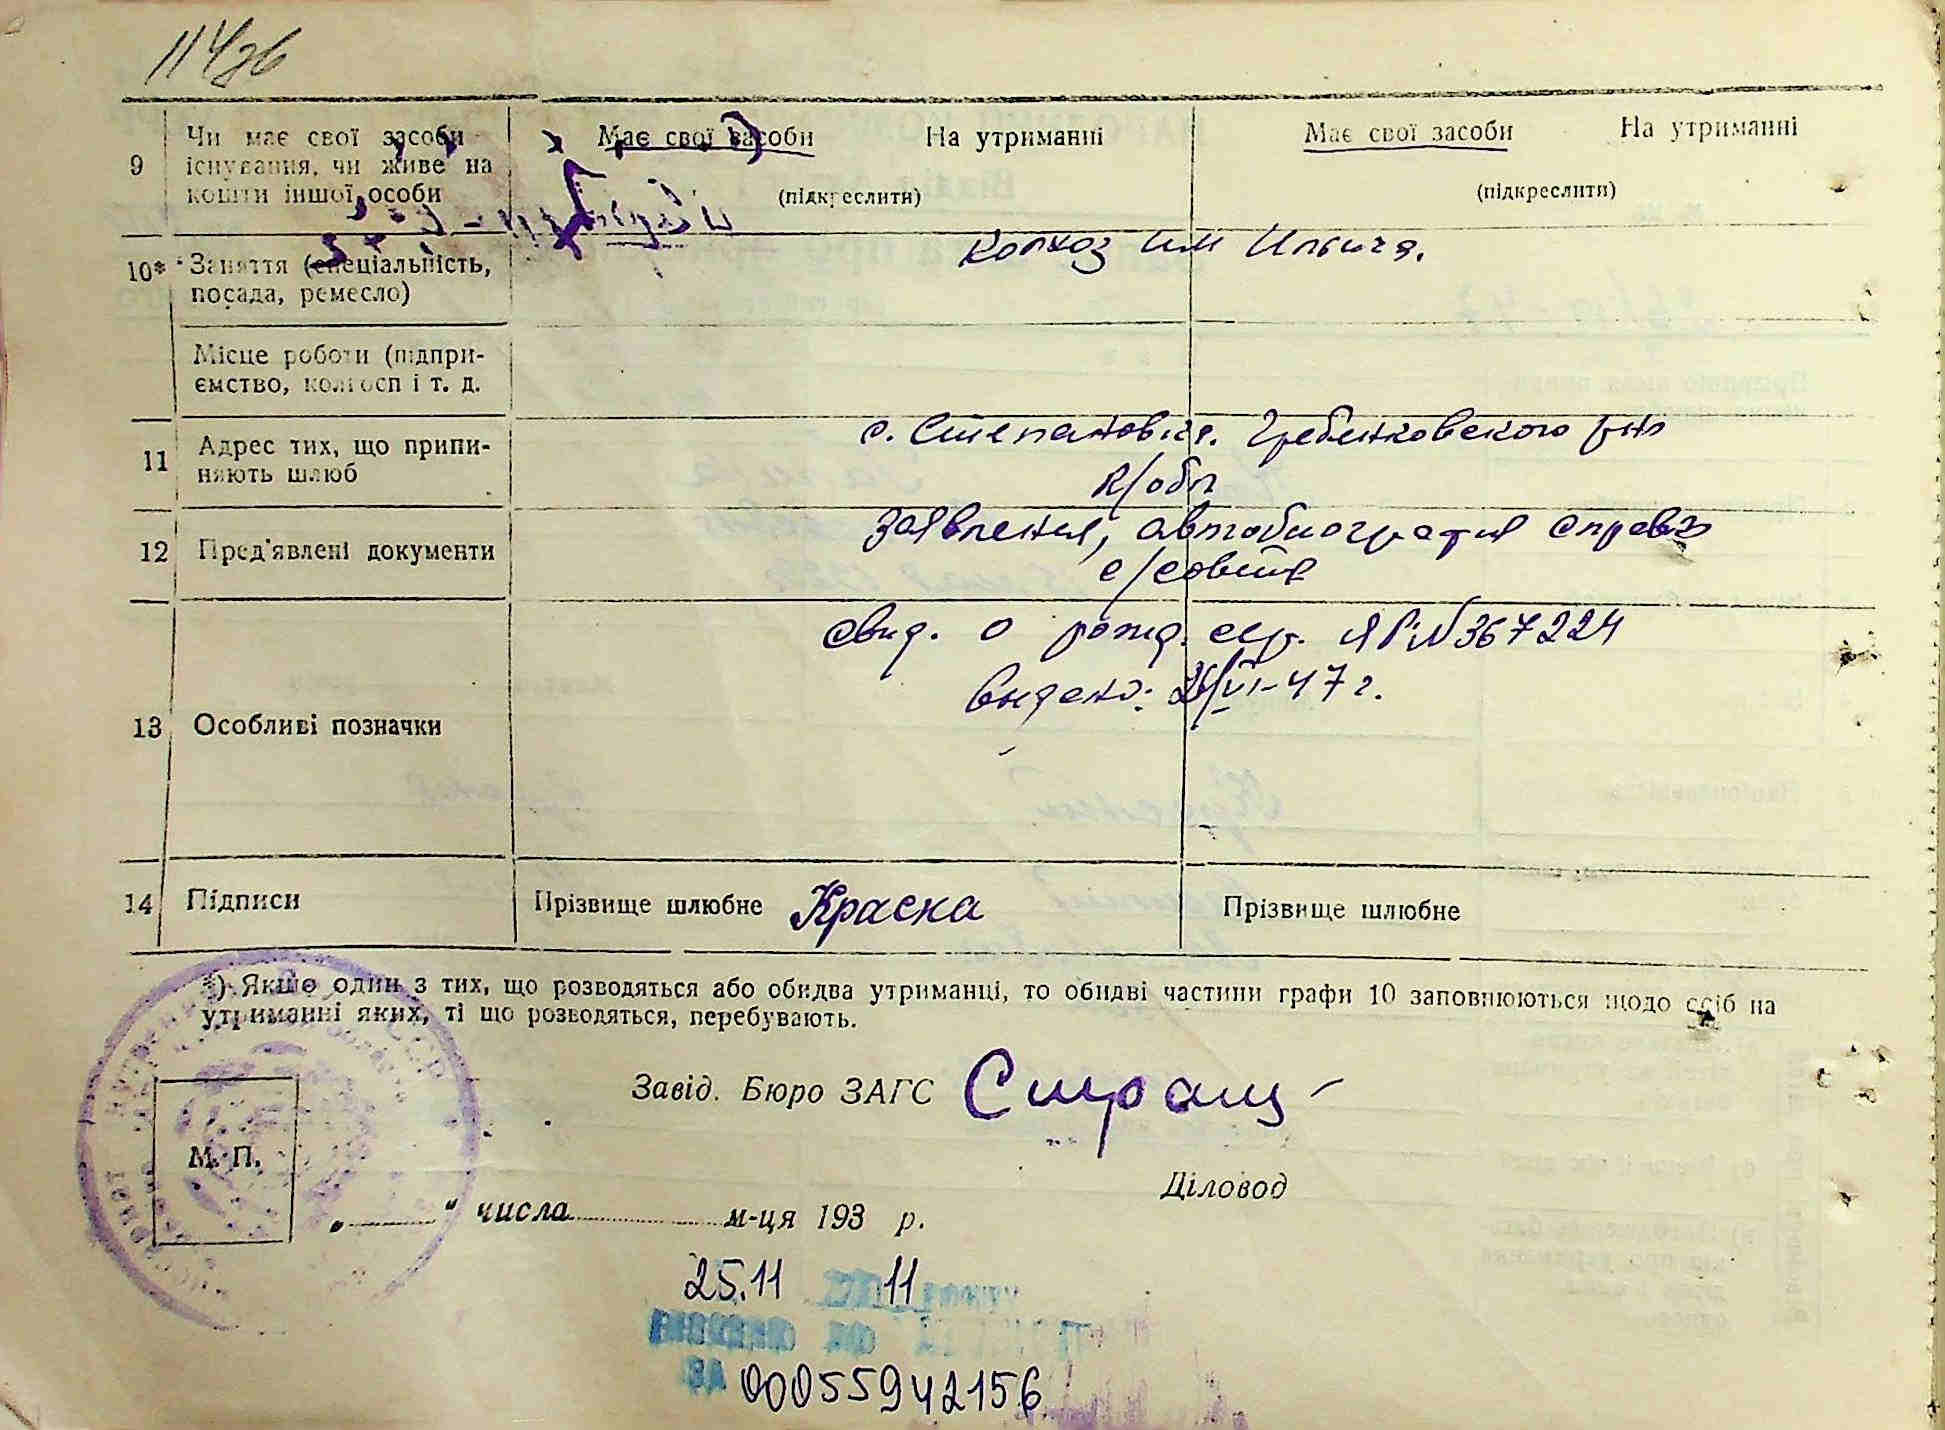 9 Чи має свої засоби існування, чи живе на кошти іншої особи
Має свої засоби На утриманні
(підкреслити)
Має свої засоби На утриманні
(підкреслити)
10* Заняття (спеціальність, посада, ремесло)
Колхоз им Ильича.
Місце роботи (підпри-
ємство, колгосп і т. д.
11 Адрес тих, що припи-
няють шлюб
с. Степановка. Гребенковского р-на
К/обл
12 Пред'явлені документи
Заявления, автобиография справка
с/совета
13 Особливі позначки
Свид. о рожд. сер. ЯР № 367224
Выдано: VI-47 г.
14 Підписи
Прізвище шлюбне Краска
Прізвище шлюбне
*) Якщо один з тих, що розводяться або обидва утриманці, то обидві частини графи 10 заповнюються щодо осіб на
утриманні яких, ті що розводяться, перебувають.
Завід. Бюро ЗАГС
М. П.
Діловод
„ “ числа м-ця 193 р.
25.11 11
ЗА 00055942156